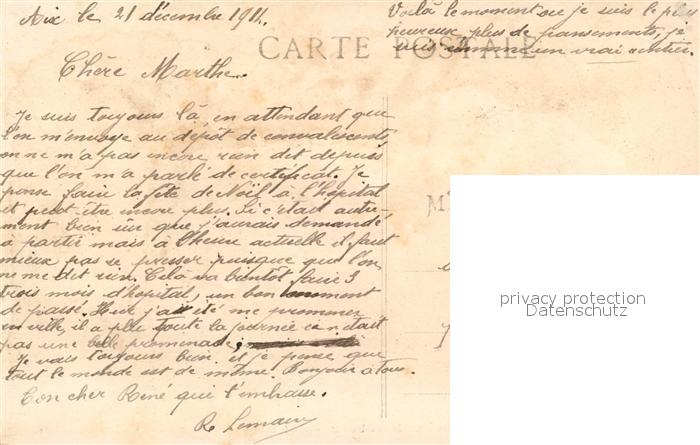 Aix le 21 décembre 1914.
Voilà le moment ou je suis le plus
heureux, plus de pansements, je
suis comme un vrai rentier.
CARTE POSTALE
Chère Marthe.
Je suis toujours là, en attendant que
l'on m'envoye au dépot de convalescents
on ne m'a pas encore rien dit depuis
que l'on m'a parlé de certificat. Je
pense faire la fête de Noël à l'hôpital
et peut-être encore plus. Si c'était autre-
ment bien sûr que j'aurais demandé
à partir mais à l'heure actuelle il faut
mieux pas se presser puisque que l'on
ne me dit rien. Celà va bientot faire 3
trois mois d'hopital, un bon moment
de passé. Hier j'ai été me promener
en ville, il a plu toute la journée ce n'était
pas une belle promenade;
Je vais toujours bien et je pense que
tout le monde est de même. Bonjour à tous.
Ton cher René qui t'embrasse.
R. Lemaire
M
privacy protection
Datenschutz